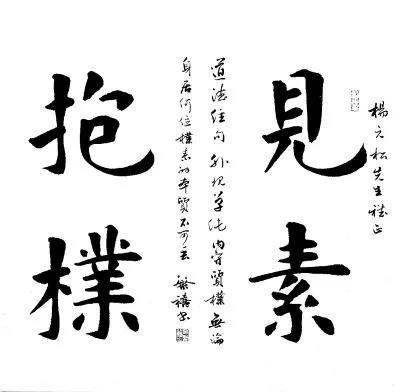 楊元松先生雅正
見素
道德佳句 外現單純 內守質樸 無論
身居何位樸素的本質不可丟
抱樸